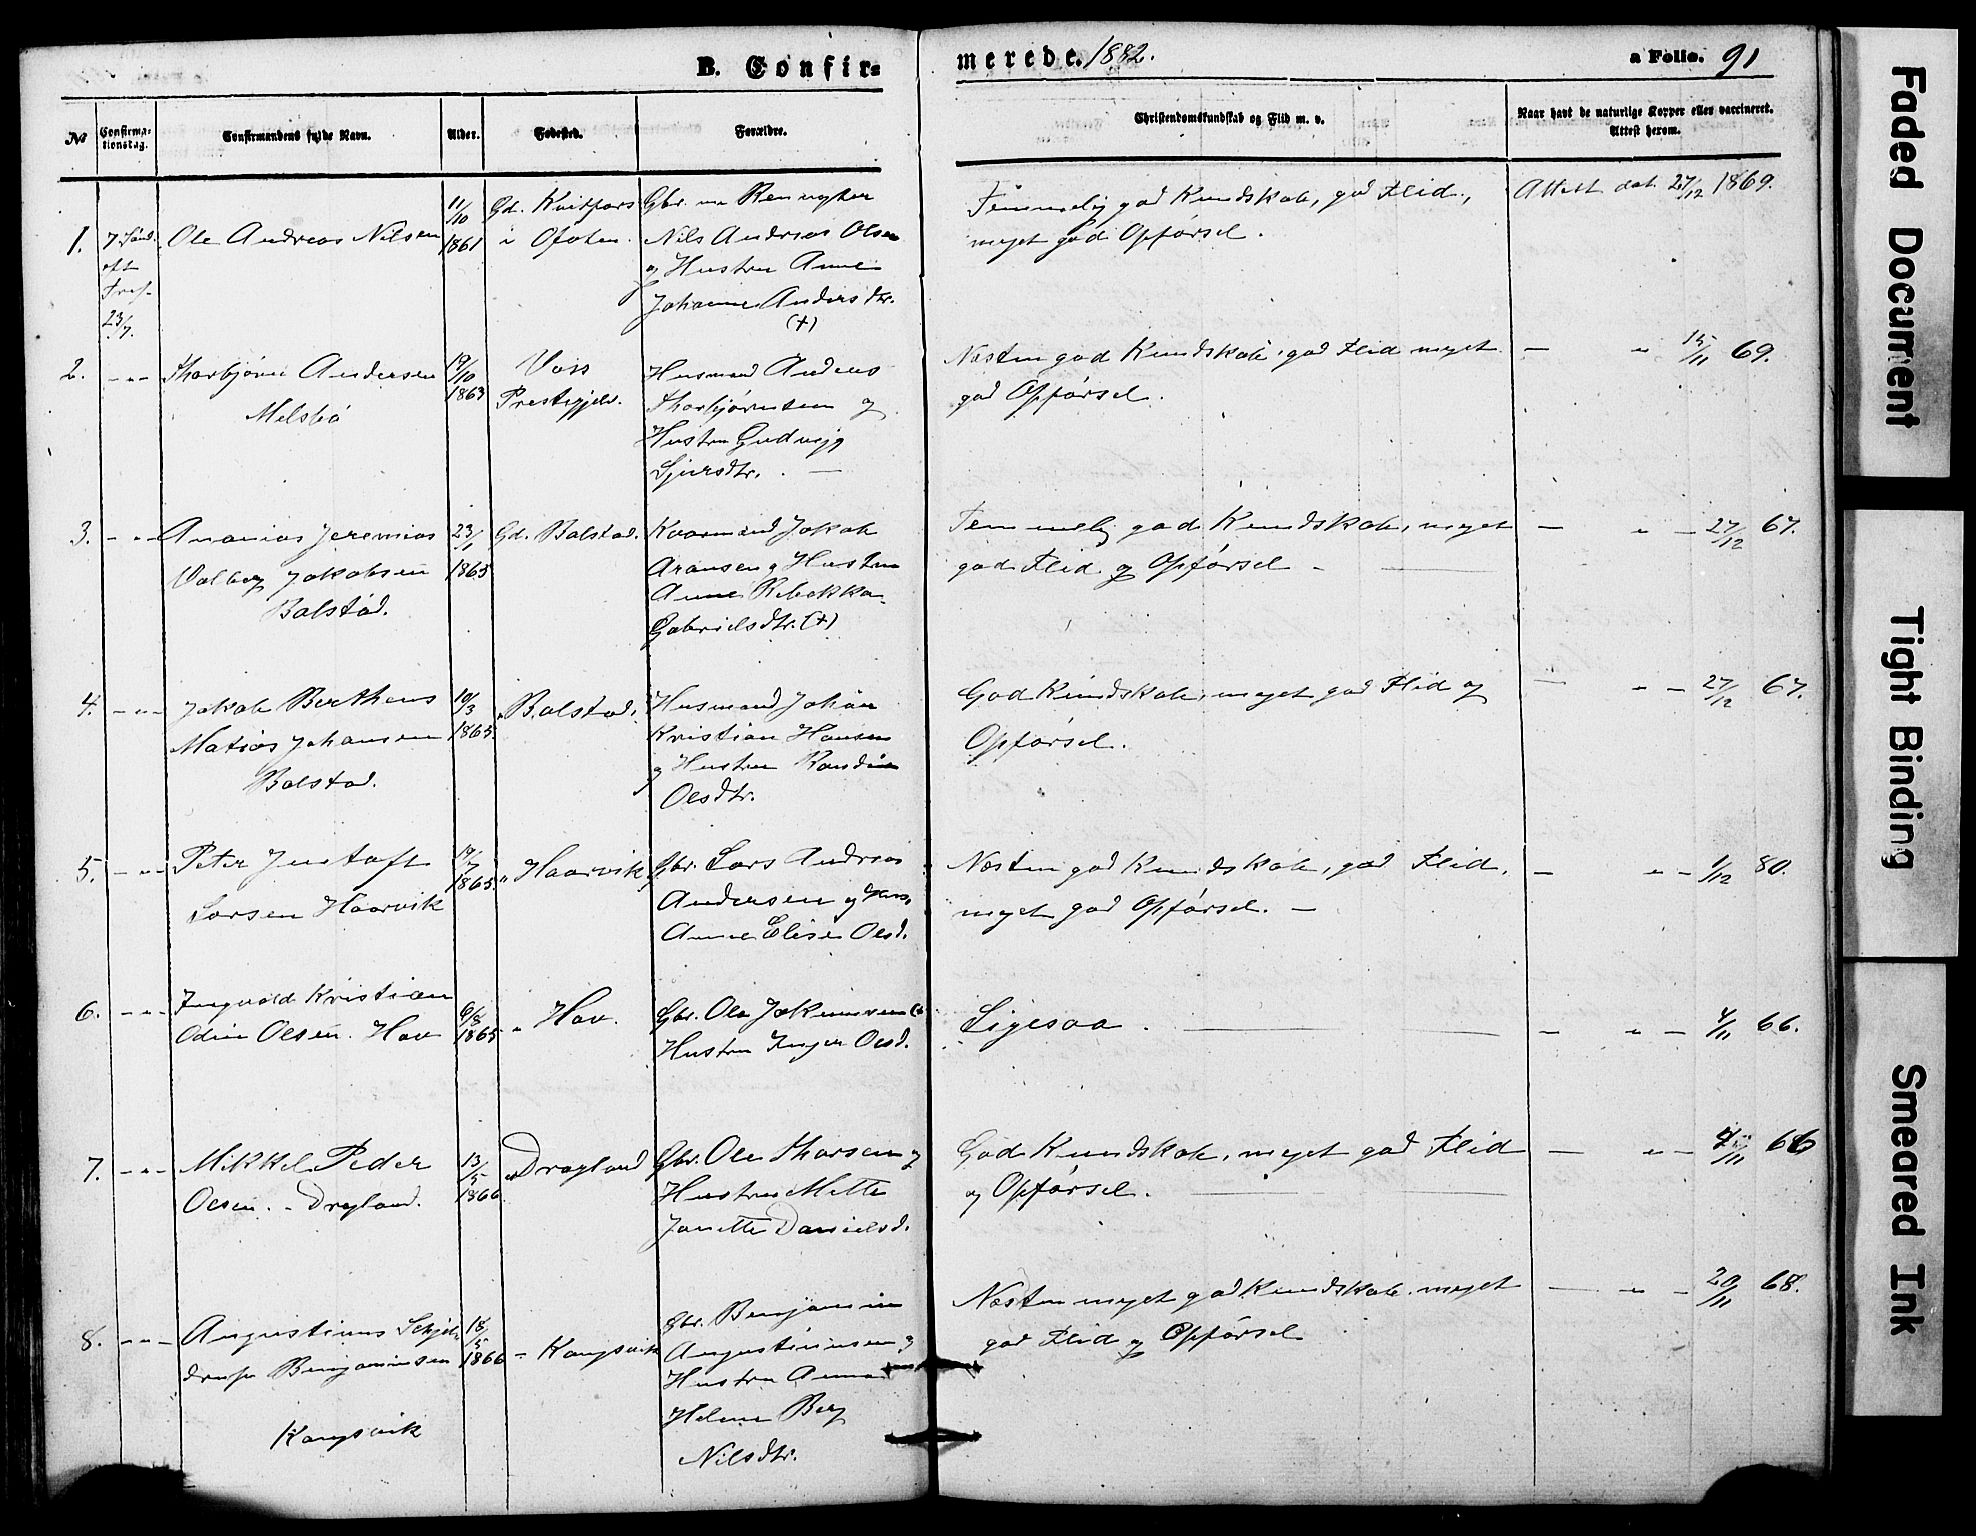 B. Confir=
merede. 1882.
a Folio. 91
No
Confirma-
tionsdag.
Confirmandens fulde Navn.
Alder.
Fødested.
Forældre.
Christendomskundskab og Flid m. v.
Naar havt de naturlige Kopper eller vaccineret.
Attest herom.
1.
7 Sønd.
eft
Tref.
23/7.
Ole Andreas Nilsen
11/10
1861
Gd.
i Ofoten.
Gbr.
Nils Andreas Olsen
og Hustru Anne
Johanne Andersdtr.
(+)
Temmelig god Kundskab, god Flid,
meget god Opførsel.
Attest dat. 27/12 1869.
2.
- " -
Thorbjørn Andersen
Melsbø
19/10
1863
Voss
Prestegjeld.
Husmand Anders
Thorbjørnsen og
Hustru Gudveig
Sjursdtr. -
Næsten god Kundskab, god Flid meget
god Opførsel.
- " 15/11 69.
3.
- " -
Ananias Jeremias
Valberg Jakobsen
Balstad.
23/1
1865
Gd. Balstad.
Kaarmand Jakob
Aronsen og Hustru
Anne Rebekka
Gabrielsdtr. (+)
Temmelig god Kundskab, meget
god Flid og Opførsel -
- " - 27/12 67.
4.
- " -
Jakob Bertheus
Matias Johansen
Balstad.
10/3
1865.
" Balstad.
Husmand Johan
Kristian Hansen
og Hustru Randine
Olsdtr.
God Kundskab, meget god Flid og
Opførsel.
- " - 27/12 67.
5.
- " -
Peter Justoft
Larsen Haarvik
1865.
" Haarvik
Gbr. Lars Andreas
Andersen og
Anne Elise Olsd.
Næsten god Kundskab, god Flid,
meget god Opførsel. -
- " - 1/12 80.
6.
- " -
Ingvald Kristian
Odin Olsen. Hov
1865
" Hov.
Gbr. Ole
Hustru Inger Olsd.
Ligesaa.
- " - 4/11 66.
7.
- " -
Mikkel Peder
Olsen. - Drogland.
13/5
1866.
" Drogland
Gbr. Ole Tharsen og
Hustru Mette
Janette Danielsd.
God Kundskab, meget god Flid
og Opførsel.
- " - 66
8.
- " -
Augustinus Schjel-
drup Benjaminsen
Kongsvik
18/5
1866
" Kongsvik
Gbr. Benjamin
Augustinusen og
Hustru Anna
Helene Berg
Nilsdtr.
Næsten meget god Kundskab meget
god Flid og Opførsel
- " - 20/11 68.
Faded Document
Tight Binding
Smeared Ink